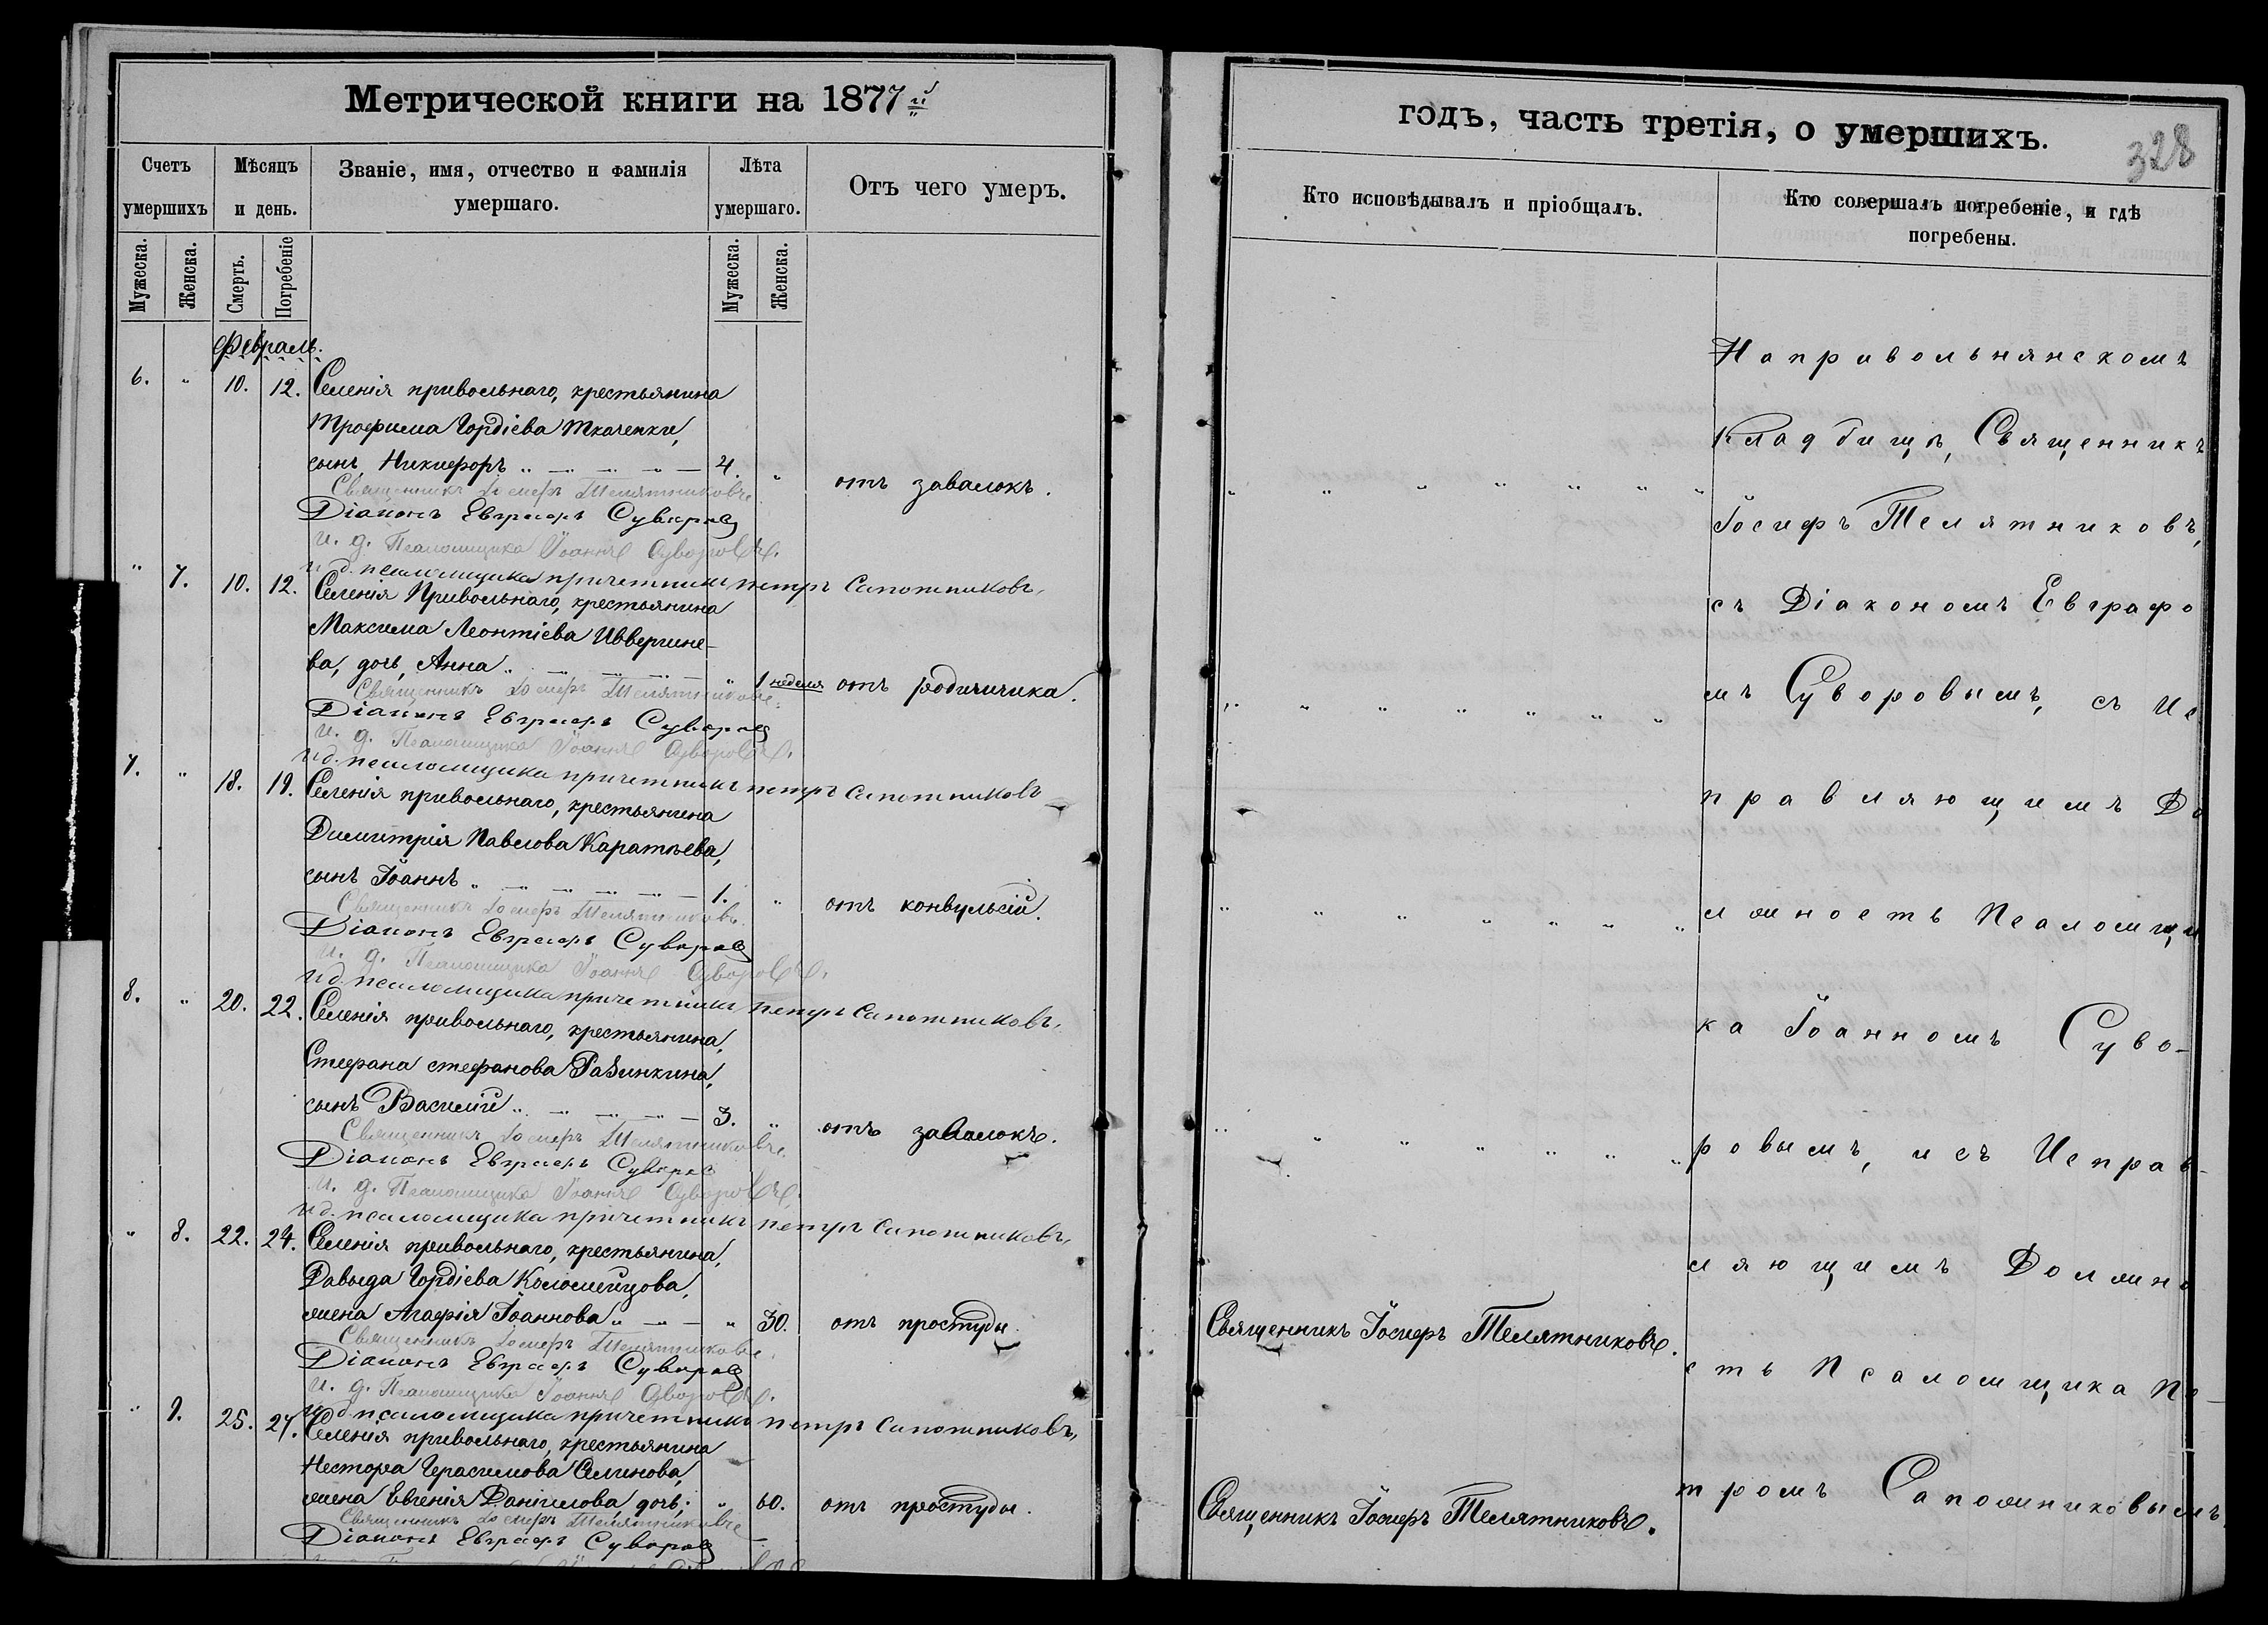 Метрической книги на 1877й
Счетъ умершихъ
Мѣсяцъ и день.
Званіе, имя, отчество и фамилія умершаго.
Лѣта умершаго.
Отъ чего умеръ.
Мужеска.
Женска.
Смерть.
Погребеніе
Мужеска.
Женска.
Февраль.
6. " 10. 12. Селенія привольнаго, крестьянина
Трофима Гордіева Ткаченки,
сынъ, Никифоръ 4. " отъ завалокъ.
Священникъ Іосифъ Телятниковъ
Діаконъ Евграфъ Суворовъ
и. д. Псаломщика Іоаннъ Суворовъ.
и д. псаломщика причетникъ петръ Сапожниковъ,
" 7. 10. 12. Селенія Привольнаго, крестьянина
Максима Леонтіева Ивергине-
ва, дочь, Анна " 1 неделя отъ родимчика.
Священникъ Іосифъ Телятниковъ
Діаконъ Евграфъ Суворовъ
и. д. Псаломщика Іоаннъ Суворовъ.
и д. псаломщика причетникъ петръ Сапожниковъ
7. " 18. 19. Селенія привольнаго, крестьянина
Димитрія Павлова Каратѣева,
сынъ Іоаннъ 1. " отъ конвульсій.
Священникъ Іосифъ Телятниковъ
Діаконъ Евграфъ Суворовъ
и. д. Псаломщика Іоаннъ Суворовъ.
и д. псаломщика причетникъ петръ Сапожниковъ,
8. " 20. 22. Селенія привольнаго, крестьянина,
Стефана стефанова Разинкина,
сынъ Василій 3. " отъ завалокъ.
Священникъ Іосифъ Телятниковъ
Діаконъ Евграфъ Суворовъ
и. д. Псаломщика Іоаннъ Суворовъ.
и д. псаломщика причетникъ петръ Сапожниковъ,
" 8. 22. 24. Селенія привольнаго, крестьянина,
Давыда Гордіева Коломейцова,
жена Агафія Іоаннова " 30. отъ простуды.
Священникъ Іосифъ Телятниковъ
Діаконъ Евграфъ Суворовъ
и. д. Псаломщика Іоаннъ Суворовъ.
и д псаломщика причетникъ петръ Сапожниковъ,
" 9. 25. 27. Селенія привольнаго, крестьянина
Нестора Герасимова Селинова,
жена Евгенія Даніилова, дочь. " 60. отъ простуды.
Священникъ Іосифъ Телятниковъ
Діаконъ Евграфъ Суворовъ
годъ, часть третія, о умершихъ.
328
Кто исповѣдывалъ и пріобщалъ.
Кто совершалъ погребеніе, и гдѣ погребены.
Священникъ Іосифъ Телятниковъ.
Священникъ Іосифъ Телятниковъ.
На привольнянскомъ
Кладбищѣ, Священникъ
Іосифъ Телятниковъ,
съ Діакономъ Евграфо
мъ Суворовымъ, съ Ис
правляющимъ До
лжность Псаломщи
ка Іоанномъ Суво-
ровымъ, и съ Исправ-
ляющимъ Должно
сть Псаломщика Пе-
тромъ Сапожниковымъ.